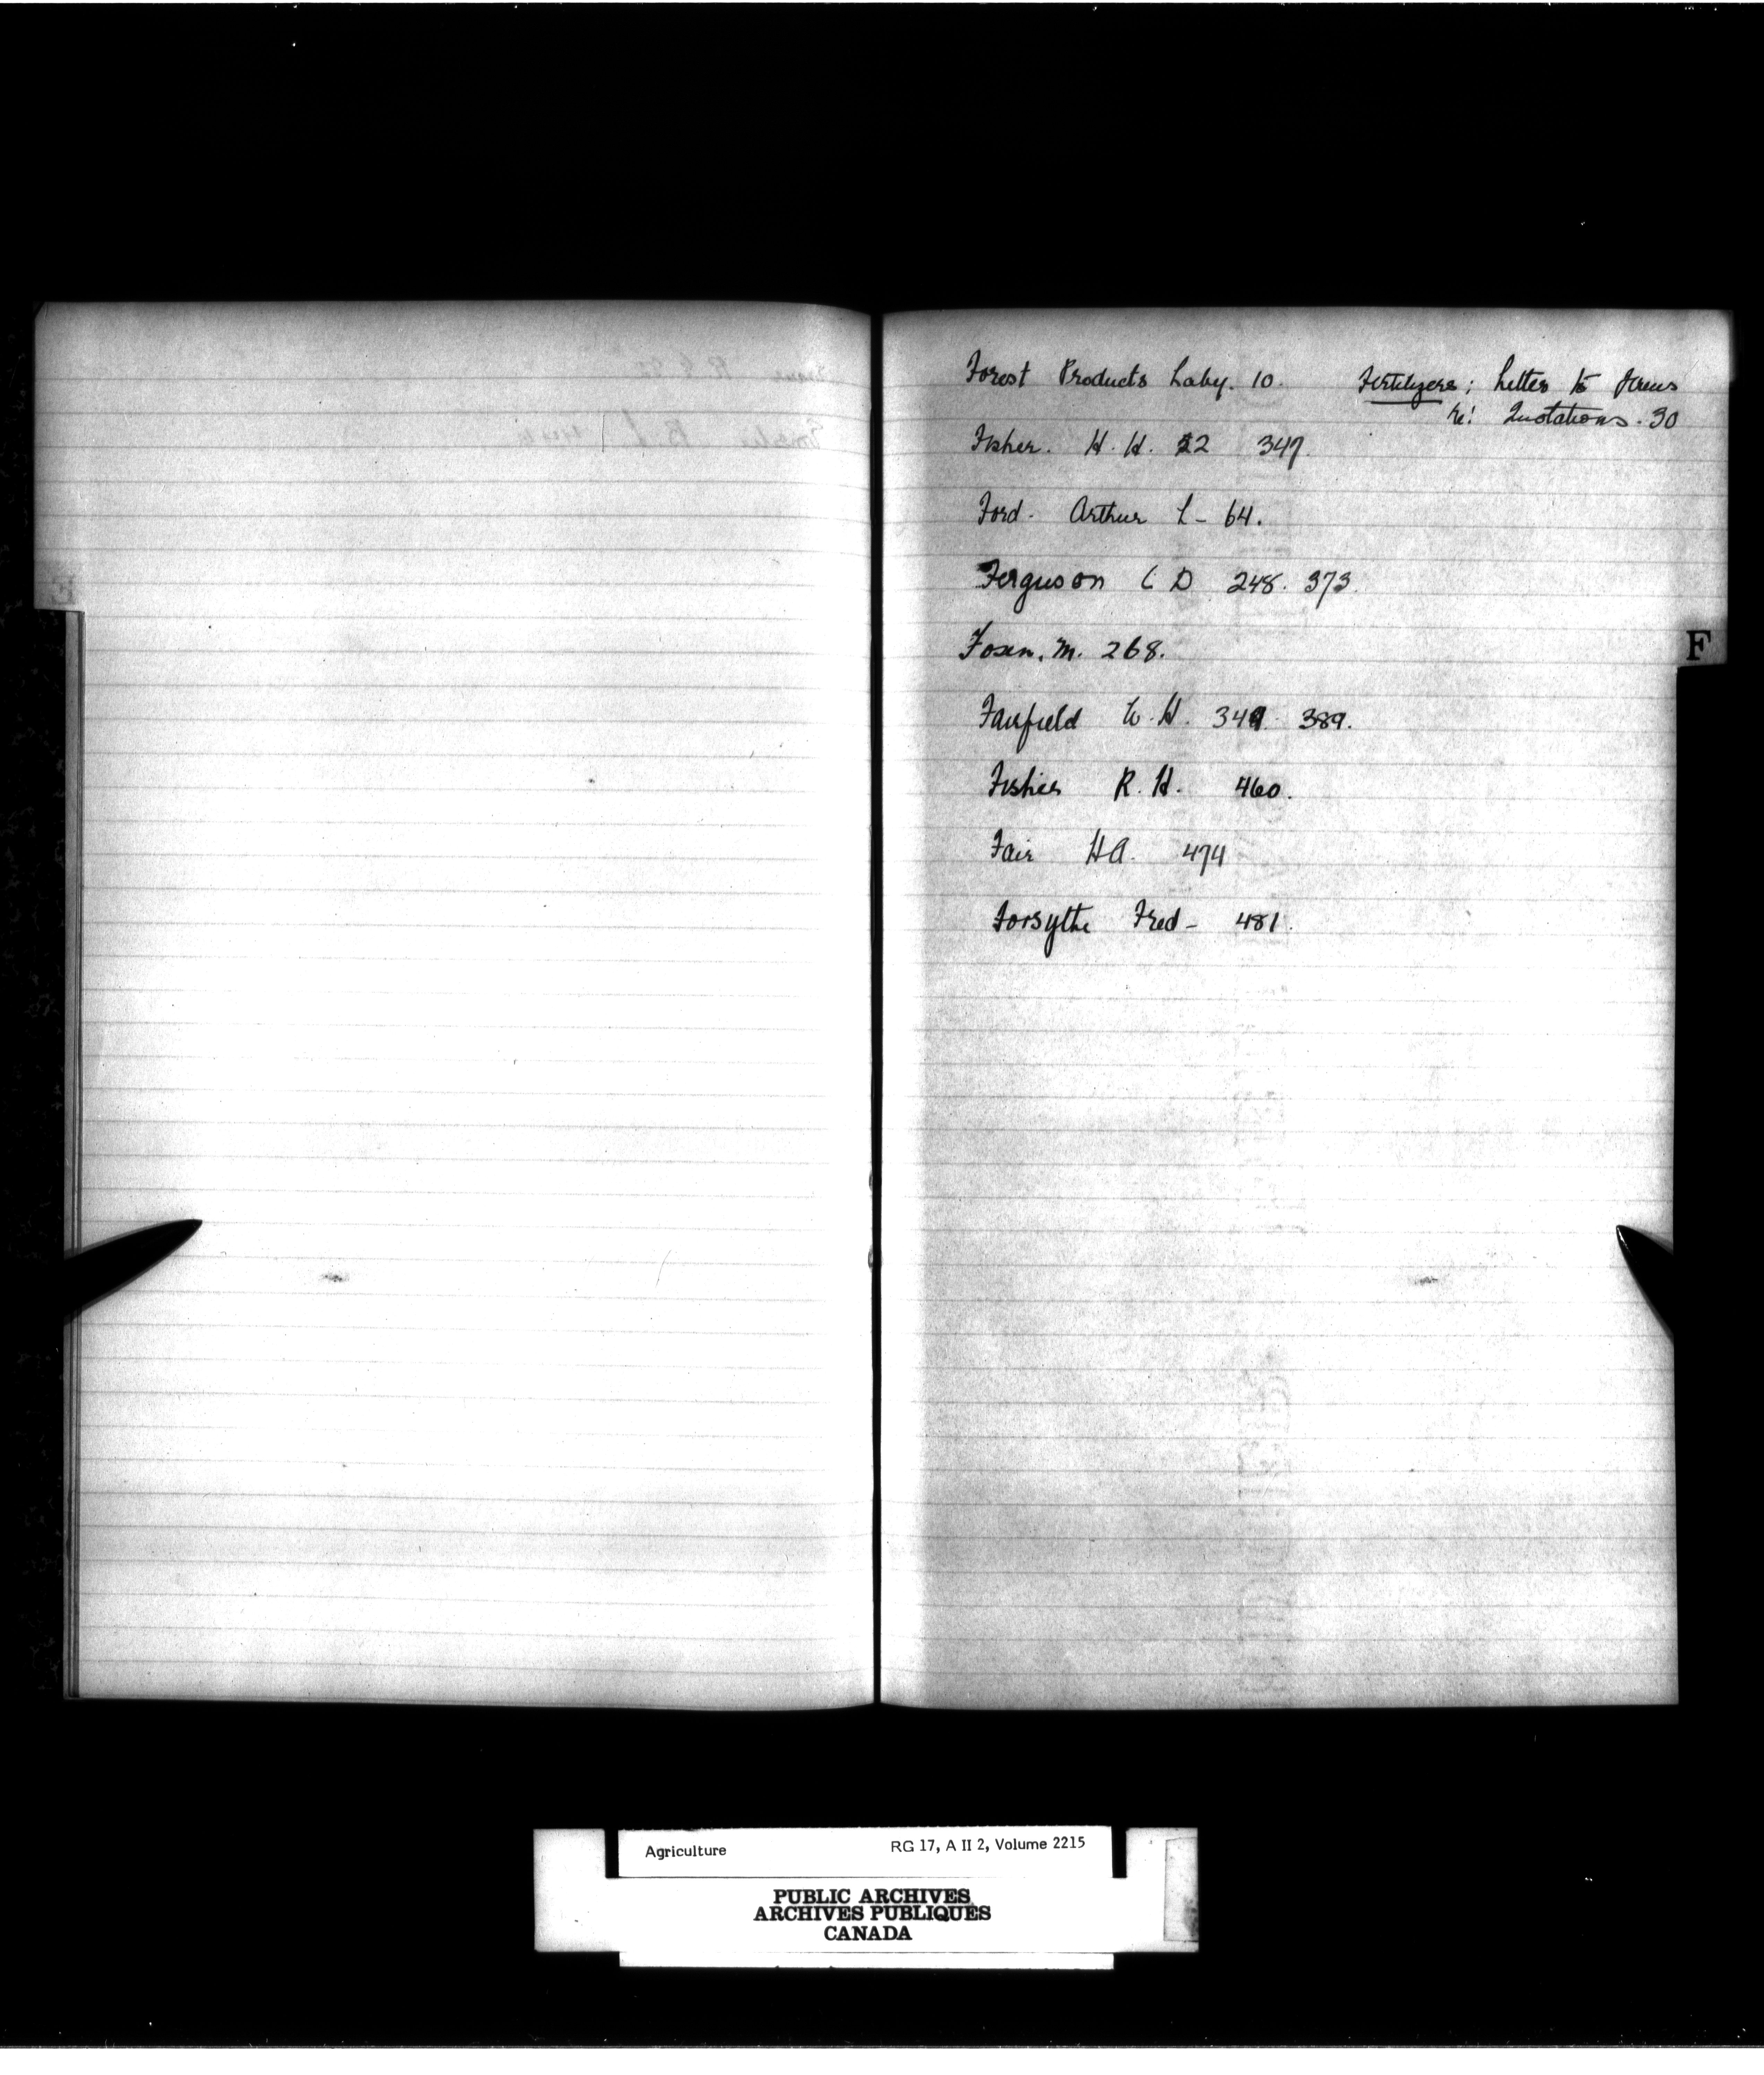 Forest Products Laby. 10.
Fertilyzers; Letter to Firms
re: Quotations. 30
Fisher. H. H. 22 347.
Ford. Arthur L- 64.
Ferguson C D 248. 373.
F
Foxen. M. 268.
Fairfield W. H. 349. 389.
Fisher R. H. 460.
Fair H A. 474
Forsythe Fred- 481.
Agriculture RG 17, A II 2, Volume 2215
PUBLIC ARCHIVES
ARCHIVES PUBLIQUES
CANADA